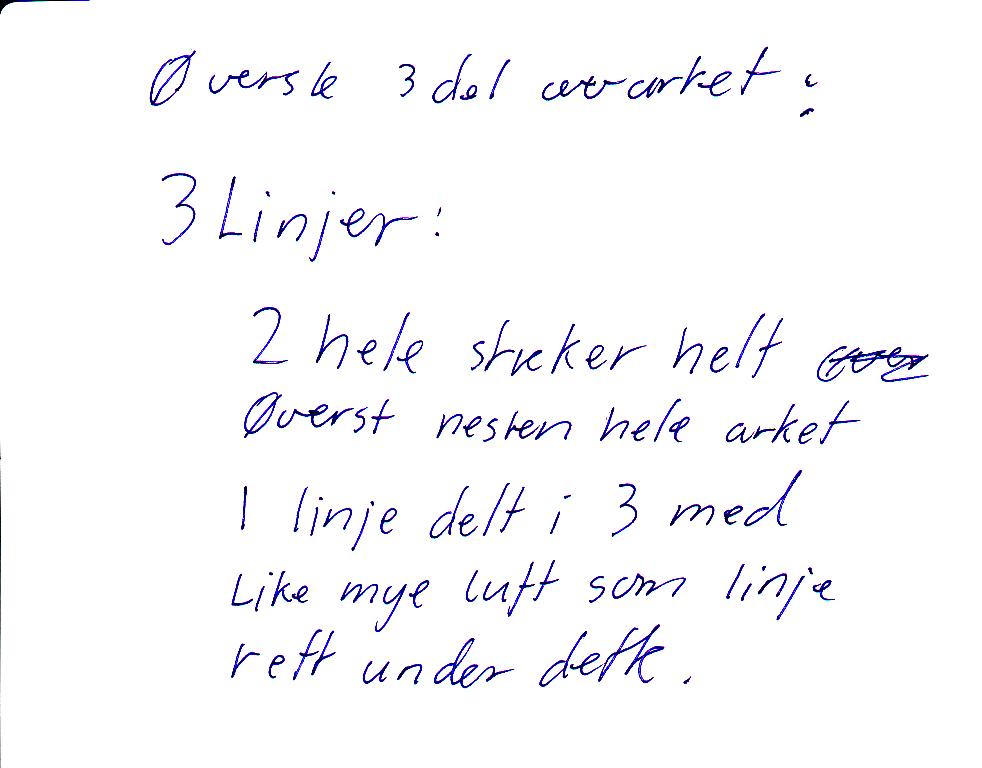 Øverste 3del av arket:
3 Linjer:
2 hele streker helt
Øverst nesten hele arket
1 linje delt i 3 med
Like mye luft som linje
rett under dette.